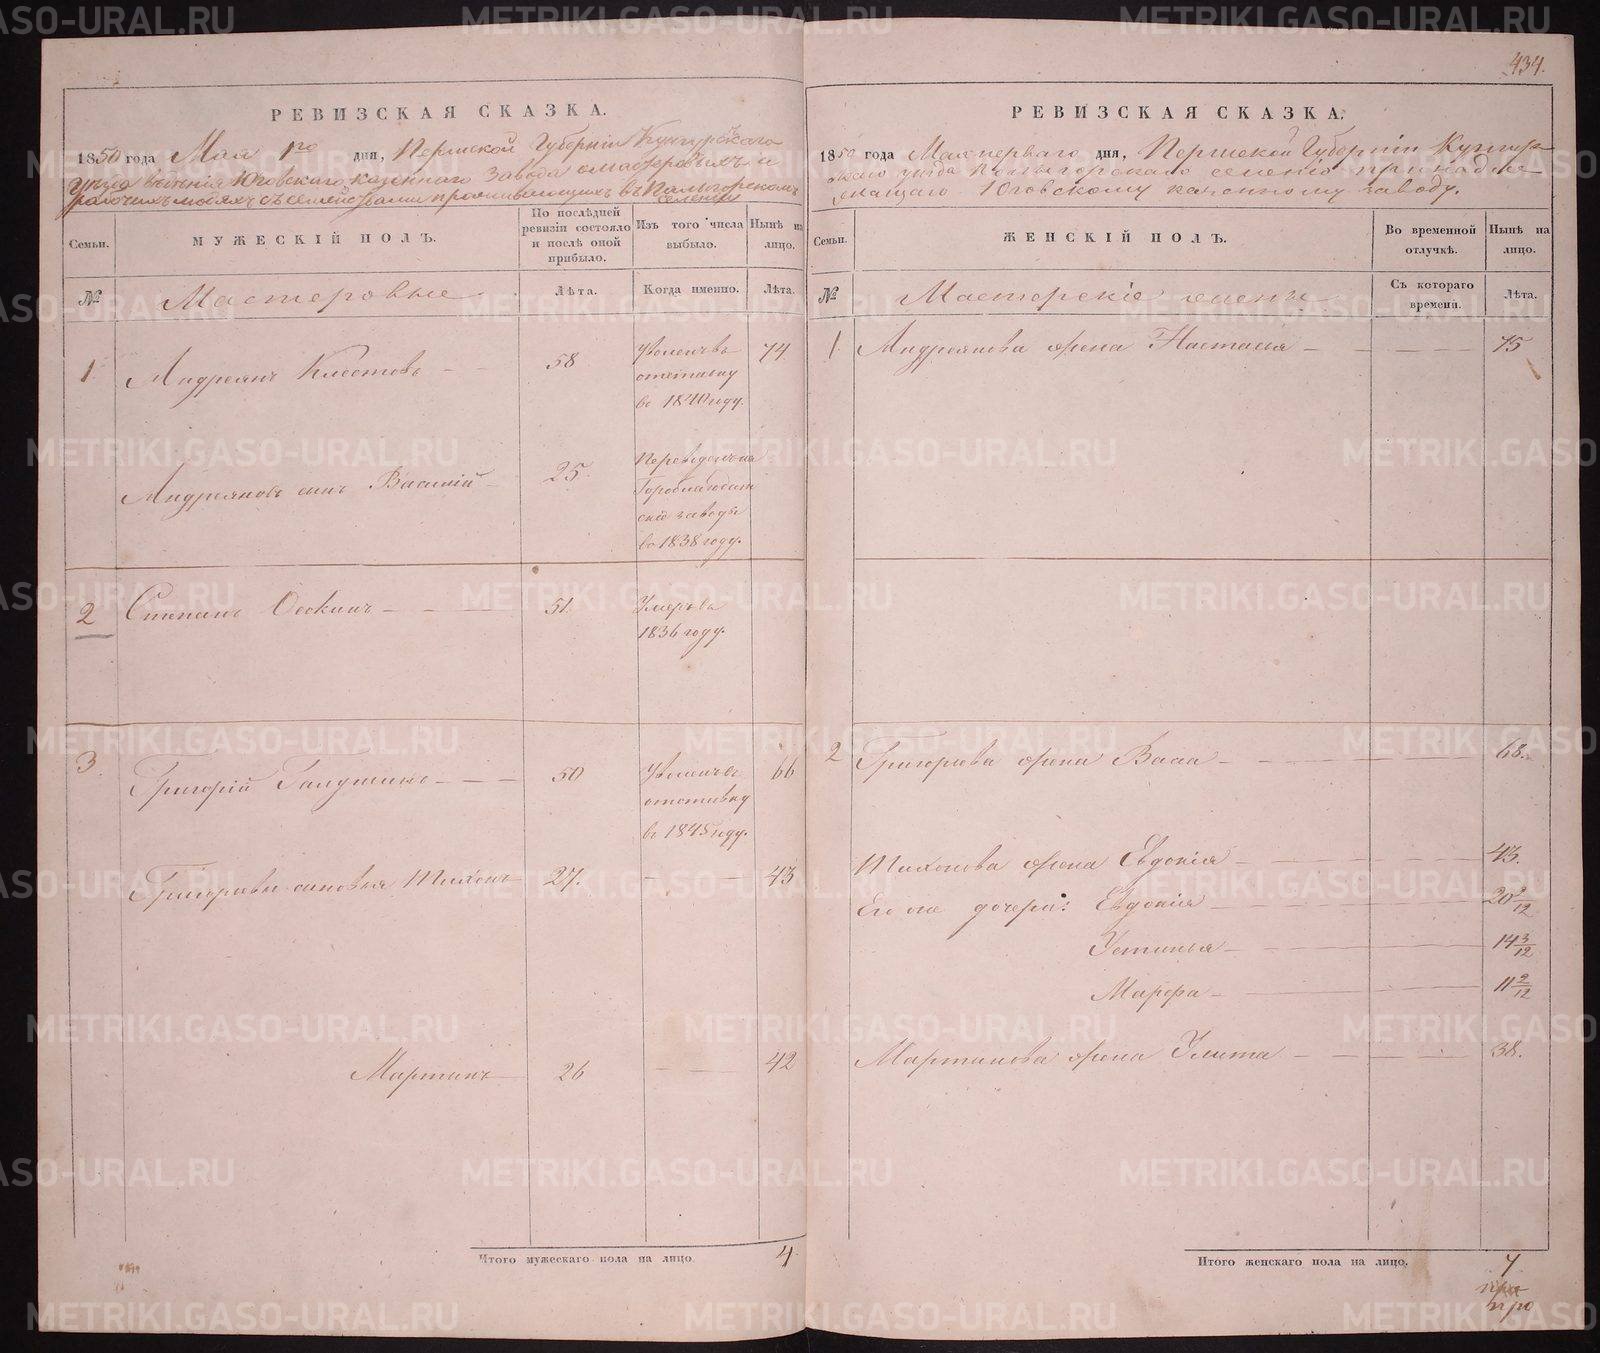 434.
РЕВИЗСКАЯ СКАЗКА.
1850 года Мая 1го дня, Пермской Губерніи Кунгурскаго
уѣзда вѣденія Юговскаго казеннаго завода о мастеровыхъ и
рабочихъ людяхъ съ семействами проживающихъ въ Пальгорскомъ
селеніи
Семьи.
МУЖЕСКІЙ ПОЛЪ.
По послѣдней ревизіи состояло и послѣ оной прибыло.
Изъ того числа выбыло.
Нынѣ на лицо.
№
Мастеровые
Лѣта.
Когда именно.
Лѣта.
1
Андреянъ Клестовъ
58
Уволенъ въ
отставку
въ 1840 году.
74
Андреяновъ сынъ Василій
25.
Переведенъ на
Гороблагодат
скіе заводы
въ 1838 году.
2
Степанъ Оскинъ
51.
Умеръ въ
1836 году.
3
Григорій Галушинъ
50
Уволенъ въ
отставку
въ 1845 году.
66
Григорьевы сыновья Тихонъ
27.
43
Мартинъ
26
42
Итого мужескаго пола на лицо.
4
РЕВИЗСКАЯ СКАЗКА.
1850 года Мая перваго дня, Пермской Губерніи Кунгур
скаго уѣзда Пальгорскаго селенія принадле
жащаго Юговскому казенному заводу.
Семьи.
ЖЕНСКІЙ ПОЛЪ.
Во временной отлучкѣ.
Нынѣ на лицо.
№
Мастерскіе жены
Съ котораго времени.
Лѣта.
1
Андреянова жена Настасья
75
2
Григорьева жена Васса
68.
Тихонова жена Евдокія
43.
Его же дочери: Евдокія
20 2/12
Устинья
14 3/12
Марфа
11 2/12
Мартинова жена Улита
38.
Итого женскаго пола на лицо.
7
METRIKI.GASO-URAL.RU